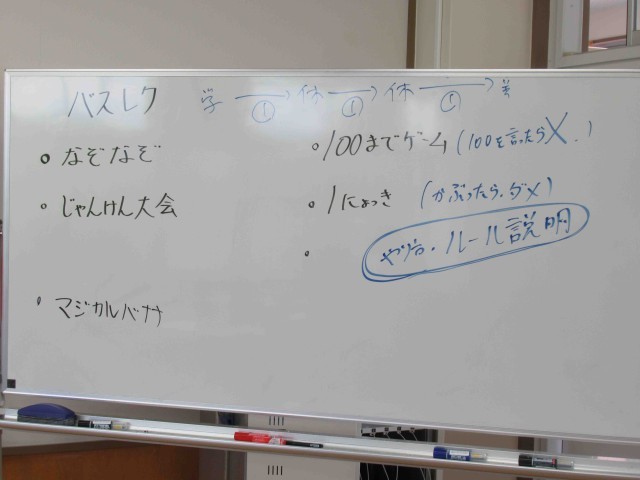 バスレク 学 → 休 → 休 → 美
① ① ⑤
○ なぞなぞ
○ じゃんけん大会
・ マジカルバナナ
○ 100までゲーム (100を言ったら×.)
○ 1にょっき (かぶったら.ダメ)
・
やり方・ルール説明